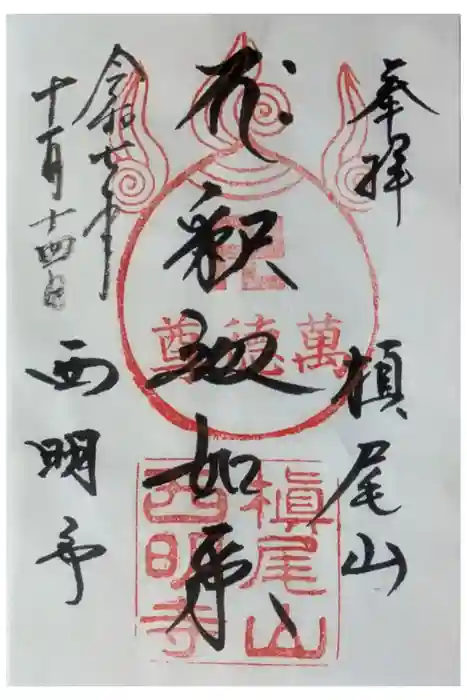 奉拝
槇尾山
釈迦如来
令和
十一月十四日
西明寺
卍
萬徳尊
槇尾山
西明寺